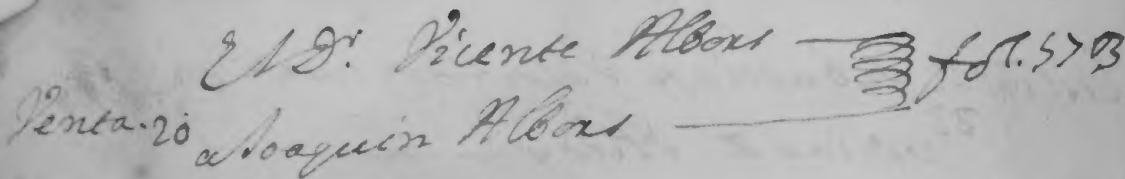 El Dr. Vicente Albors fol. 573
Venta. 20 a Joaquin Albors